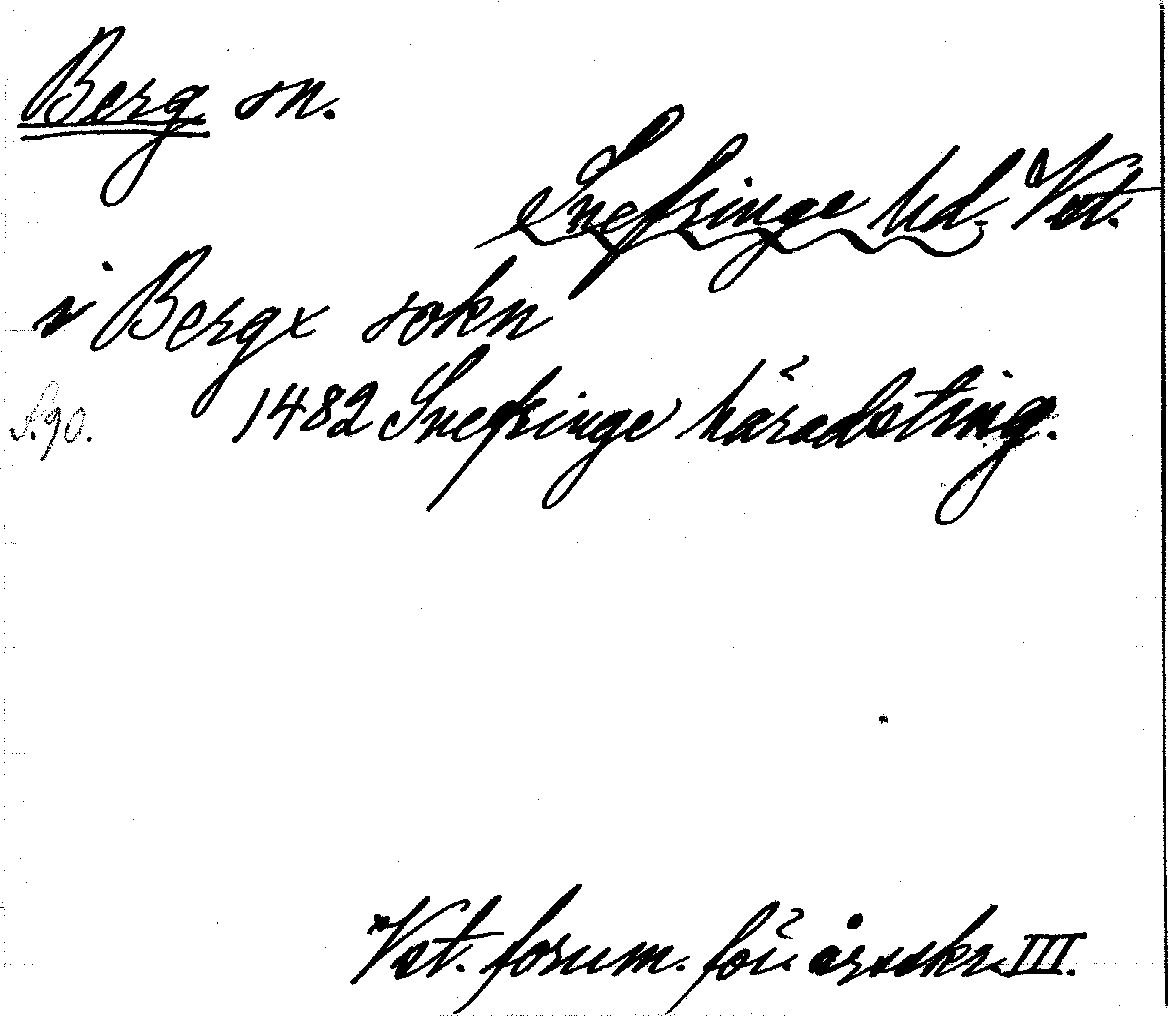 Berg sn.
Snefringe hd. Vst.
i Bergx sokn
S. 90. 1482 Snefringe häradsting.
Vst. fornm. för. årsskr. III.